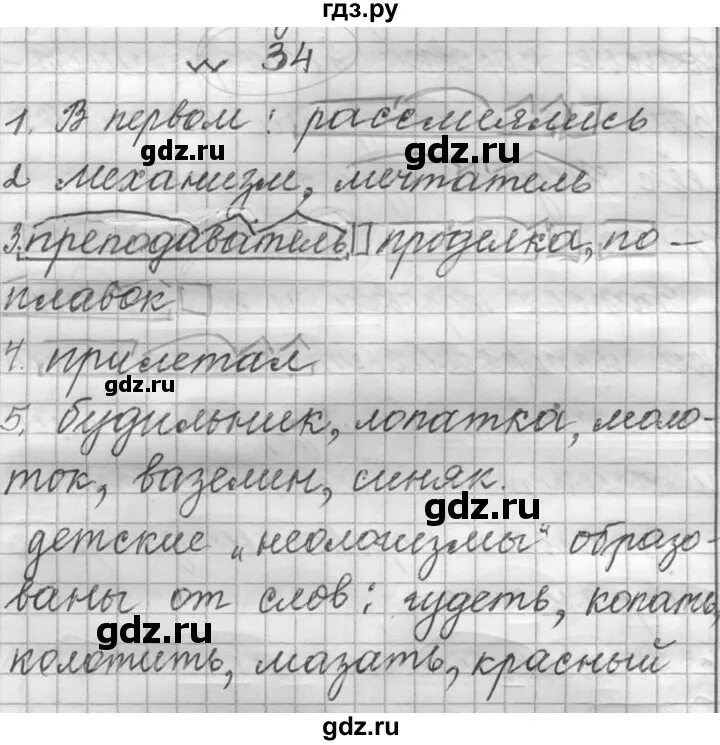 гдз.ру
№ 34
1. В первом: рассмеялись
gdz.ru gdz.ru
2 механизм, мечтатель
3. преподаватель проделка, по-
плавок
4. прилетал
gdz.ru
5. будильник, лопатка, моло-
ток, вазелин, синяк.
gdz.ru
детские „неологизмы" образо-
ваны от слов: гудеть, копать,
gdz.ru
колотить, мазать, красный
gdz.ru
gdz.ru